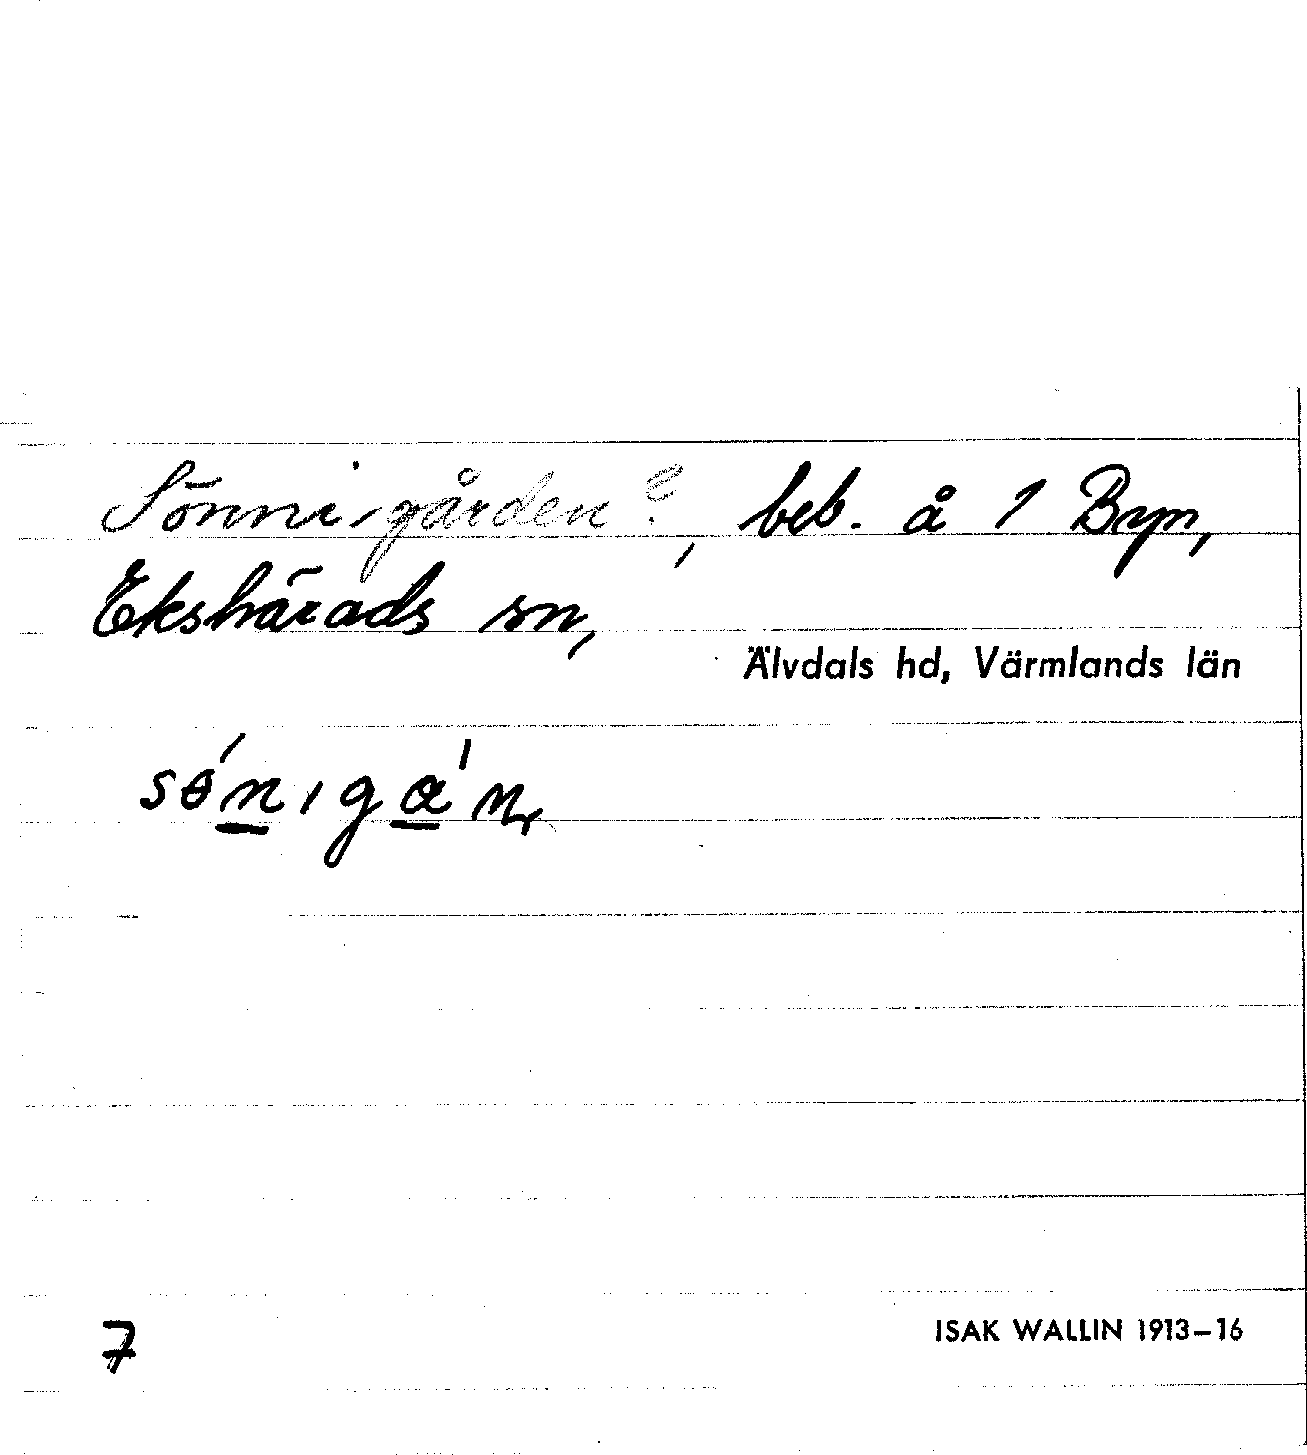 Sönni,gården?, beb. å 1 Byn,
Ekshärads sn,
Älvdals hd, Värmlands län
sɵ́nıgán
7
ISAK WALLIN 1913–16